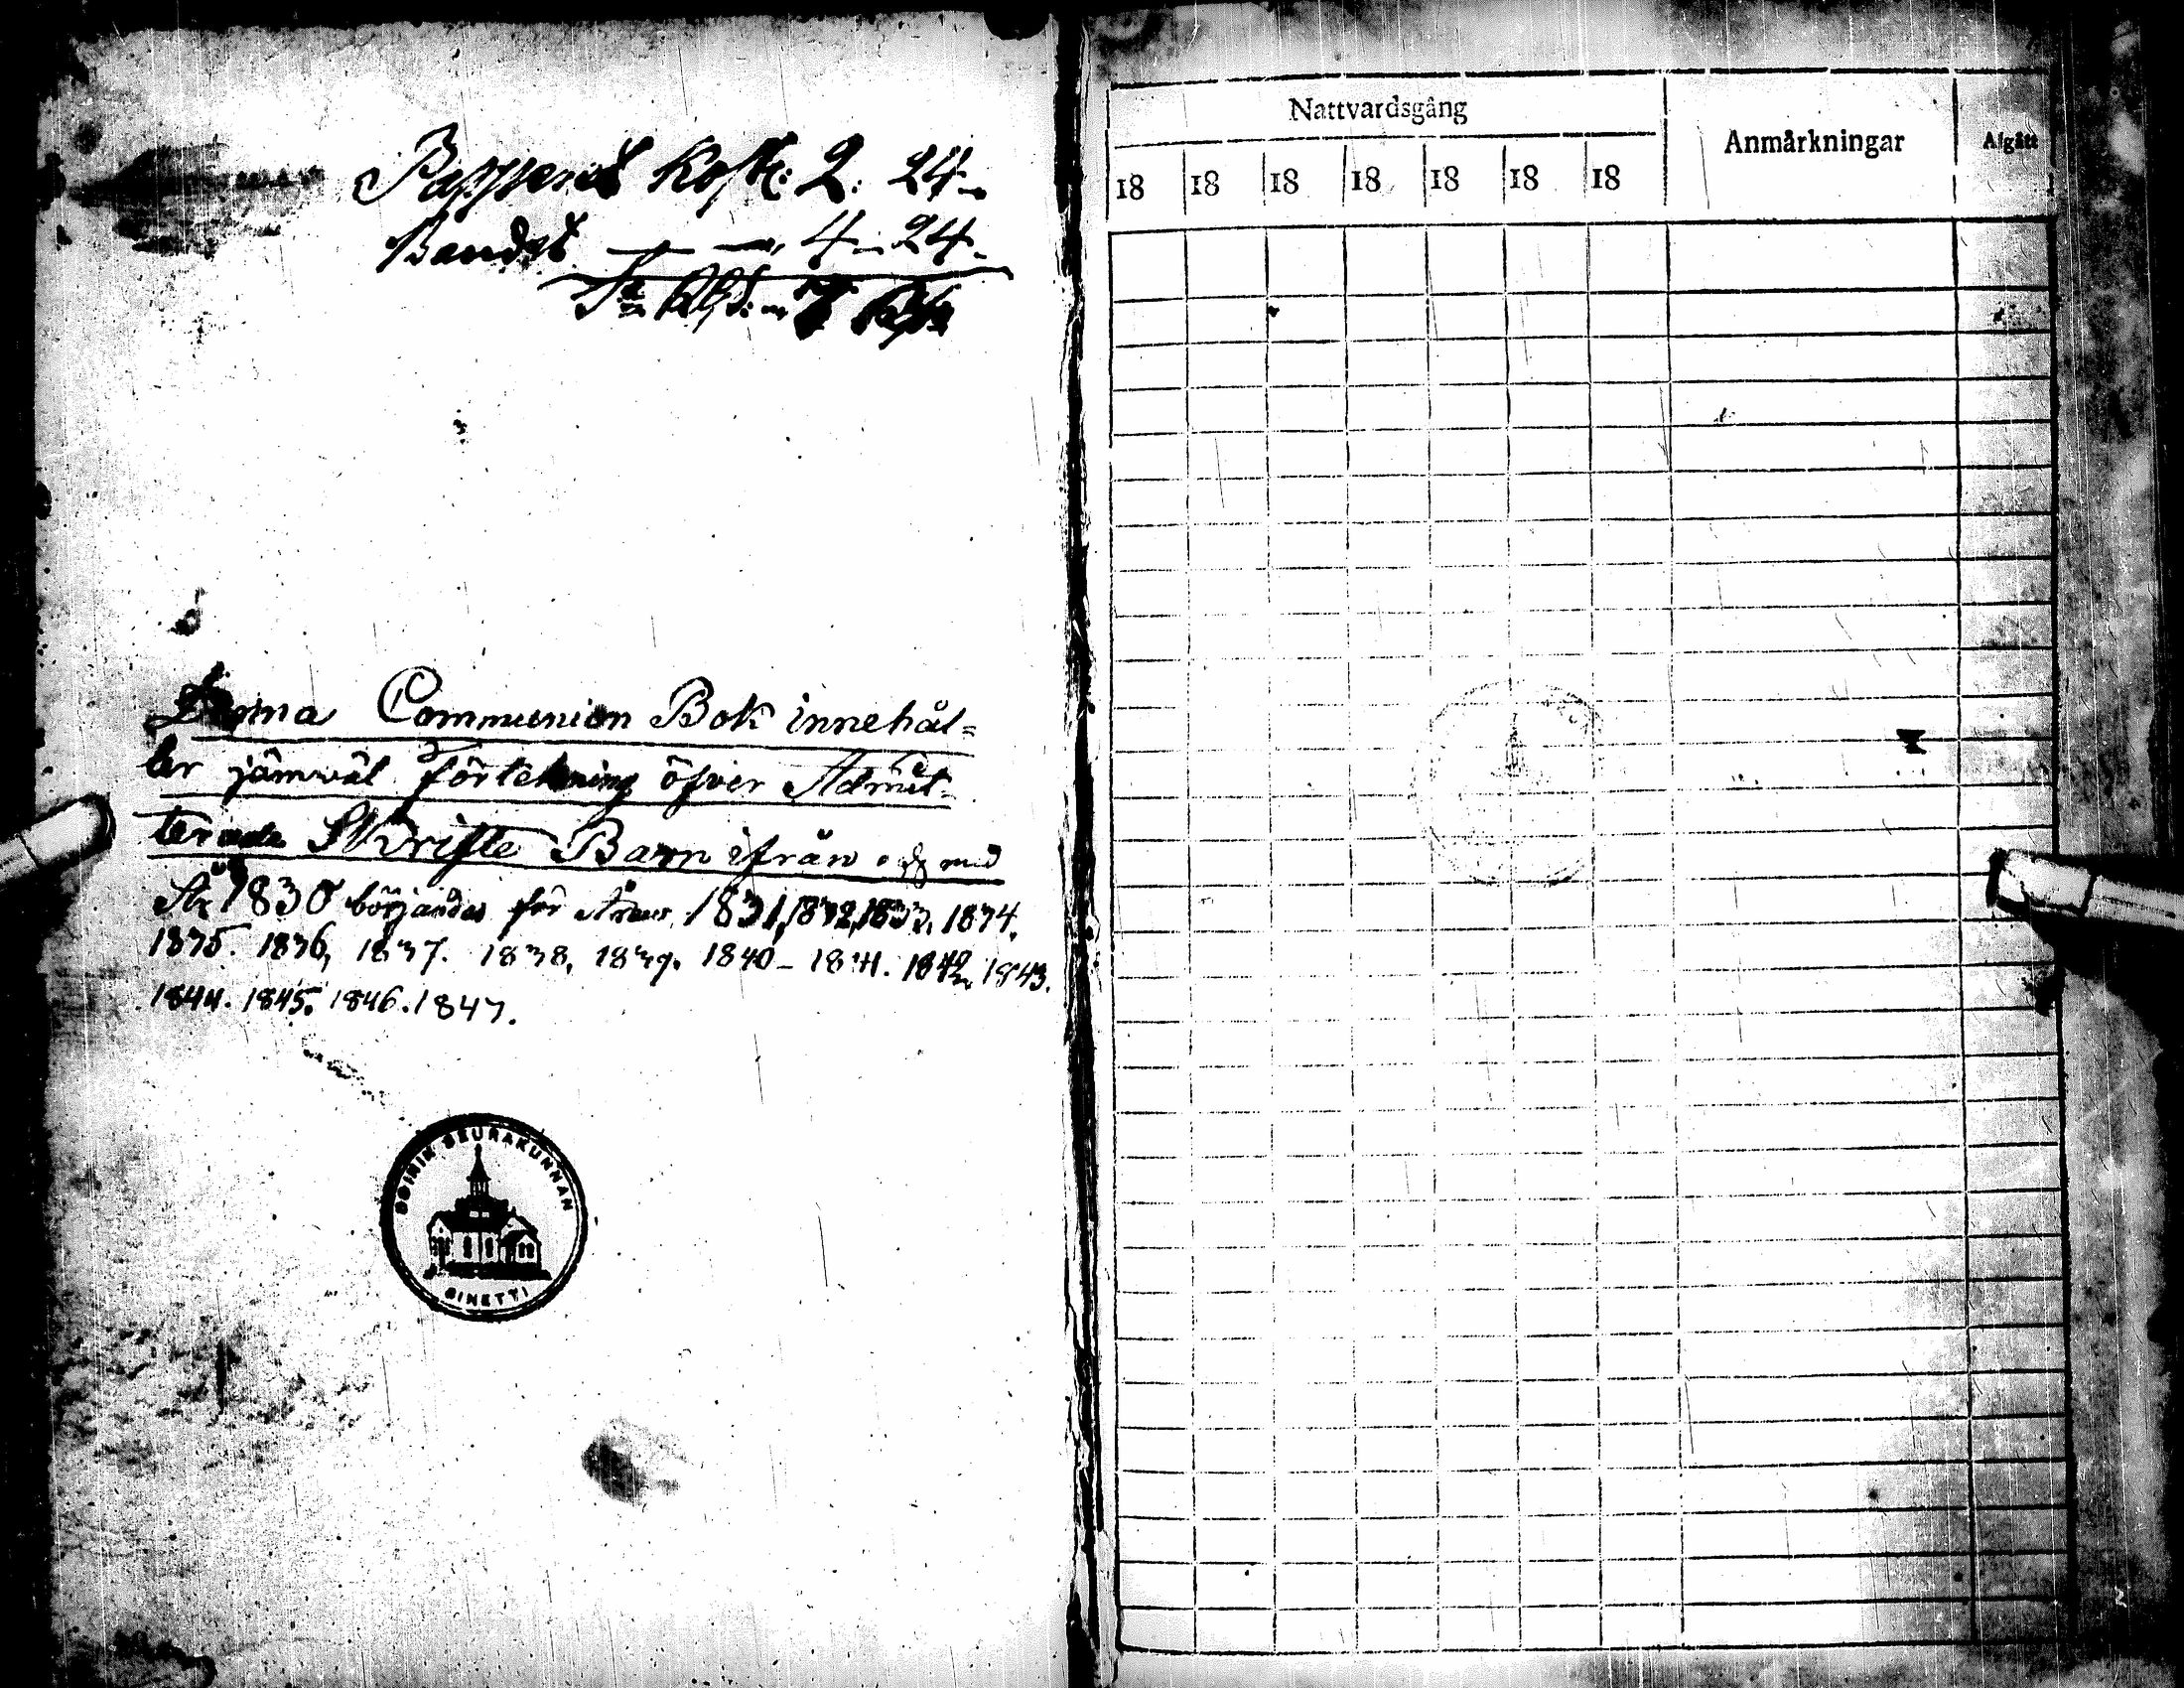 Papperet kost: 2. 24.
Bandet — — 4 — 24.
Sa Rbd.
Denna Communion Bok innehål=
ler jämwäl förtekning öfver Admit-
terade Skrifte Barn ifrån och med
År 1830 börjandes för Åren 1831, 1832, 1833, 1834.
1835. 1836, 1837. 1838, 1839. 1840 - 1841. 1842, 1843.
1844. 1845. 1846. 1847.
SOININ SEURAKUNNAN
SINETTI
Nattvardsgång
Anmårkningar
Afgått
18 18 18 18 18 18 18